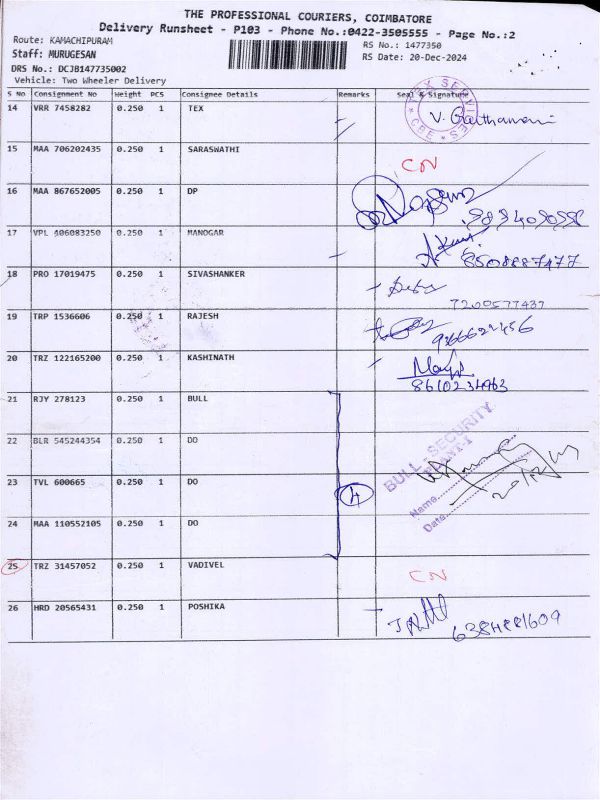 THE PROFESSIONAL COURIERS, COIMBATORE
Delivery Runsheet - P103 - Phone No.:0422-3505555 - Page No.:2
Route: KAMACHIPURAM
RS No.: 1477350
Staff: MURUGESAN
RS Date: 20-Dec-2024
DRS No.: DCJB147735002
Vehicle: Two Wheeler Delivery
S No Consignment No Weight PCS Consignee Details Remarks Seal & Signature
14 VRR 7458282 0.250 1 TEX
TEX SERVICES CBE
15 MAA 706202435 0.250 1 SARASWATHI
CN
16 MAA 867652005 0.250 1 DP
17 VPL 406083250 0.250 1 MANOGAR
8508887477
18 PRO 17019475 0.250 1 SIVASHANKER
7200577437
19 TRP 1536606 0.250 1 RAJESH
20 TRZ 122165200 0.250 1 KASHINATH
8610234963
21 RJY 278123 0.250 1 BULL
22 BLR 545244354 0.250 1 DO
BULL SECURITY
PLANT-I
23 TVL 600665 0.250 1 DO
4
Name
20/12/24
24 MAA 110552105 0.250 1 DO
Date
25 TRZ 31457052 0.250 1 VADIVEL
CN
26 HRD 20565431 0.250 1 POSHIKA